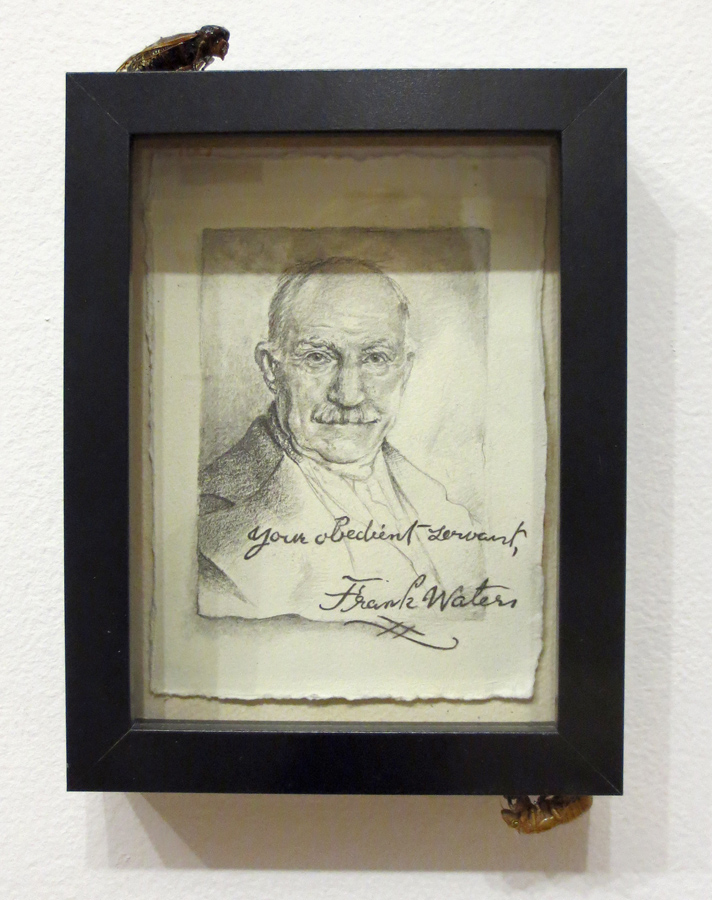 Your obedient servant,
Frank Waters